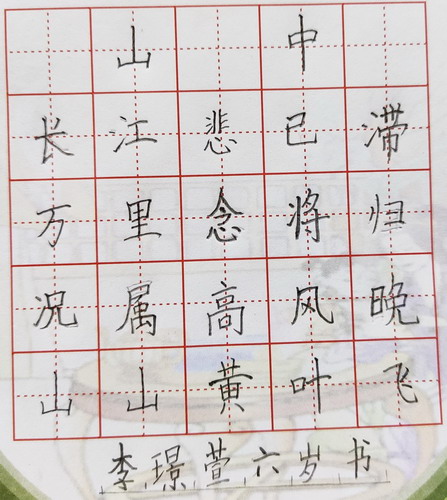 山中
长江悲已滞
万里念将归
况属高风晚
山山黄叶飞
李璟萱六岁书